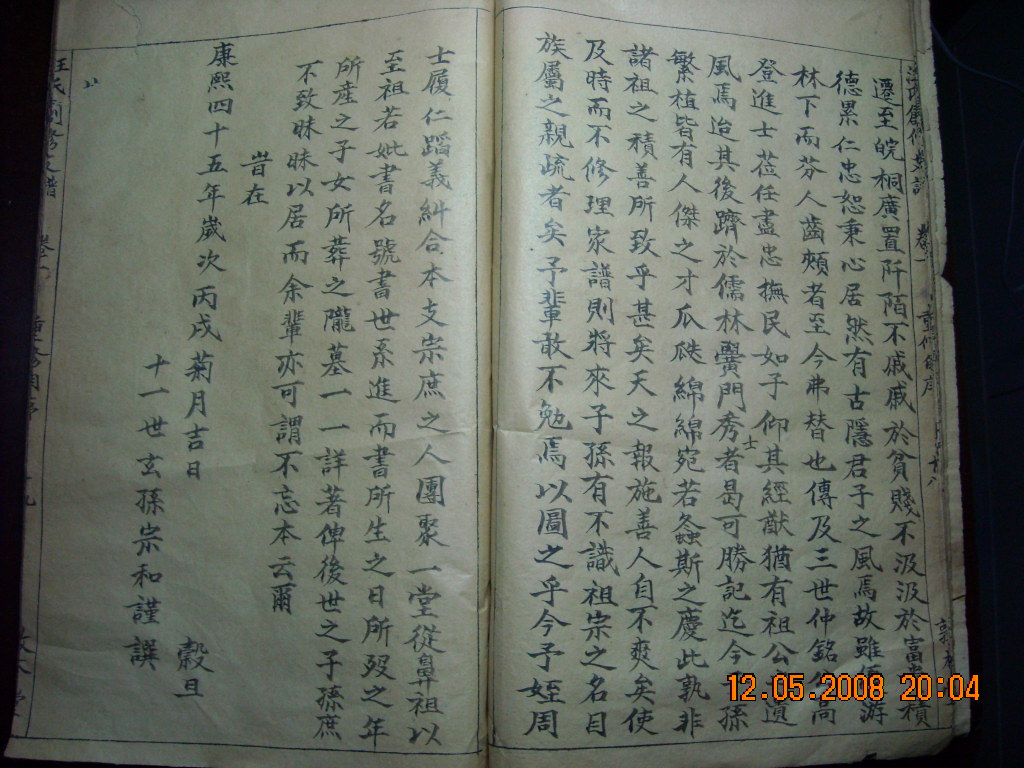 遷至皖桐廣置阡陌不戚戚於貧賤不汲汲於富貴積
德累仁忠恕秉心居然有古隱君子之風焉故雖優游
林下而芬人齒頰者至今弗替也傳及三世仲銘公高
登進士莅任盡忠撫民如子仰其經猷猶有祖公遺
風焉迨其後躋於儒林黌門秀士者曷可勝記迄今孫
繁植皆有人傑之才瓜瓞綿綿宛若螽斯之慶此孰非
諸祖之積善所致乎甚矣天之報施善人自不爽矣使
及時而不修理家譜則將來子孫有不識祖宗之名目
族屬之親疏者矣予輩敢不勉焉以圖之乎今予姪周
士履仁蹈義糾合本支宗庶之人團聚一堂從鼻祖以
至祖若妣書名號書世系進而書所生之日所歿之年
所產之子女所葬之隴墓一一詳著俾後世之子孫庶
不致昧昧以居而余輩亦可謂不忘本云爾
旹在
康熙四十五年歲次丙戌菊月吉日
穀旦
十一世玄孫宗和謹譔
12.05.2008 20:04